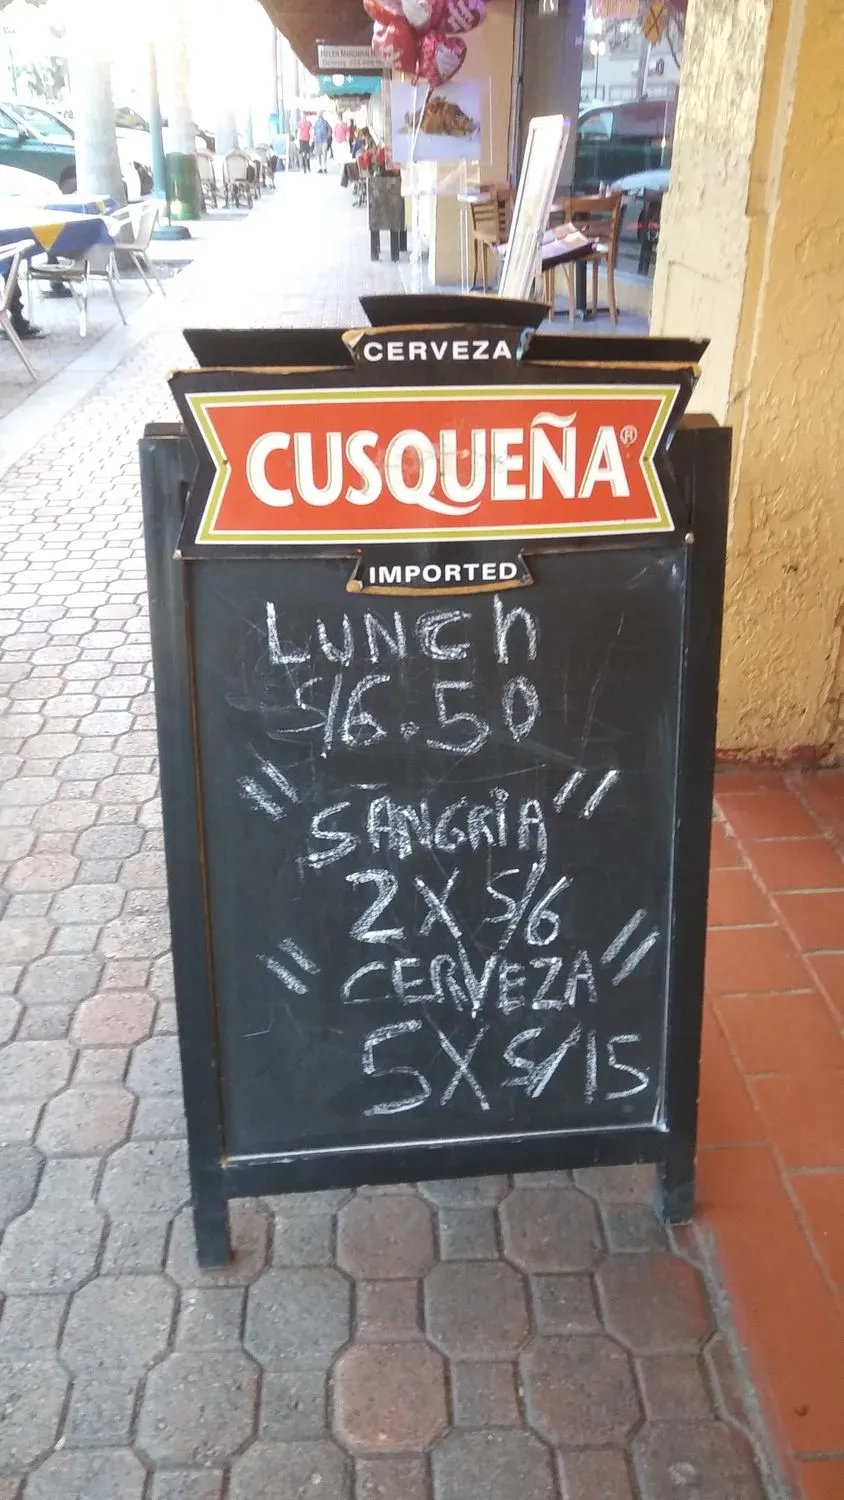 CERVEZA
CUSQUEÑA®
IMPORTED
LUNCH
S/6.50
"SANGRIA"
2 X S/6
"CERVEZA"
5 X S/15